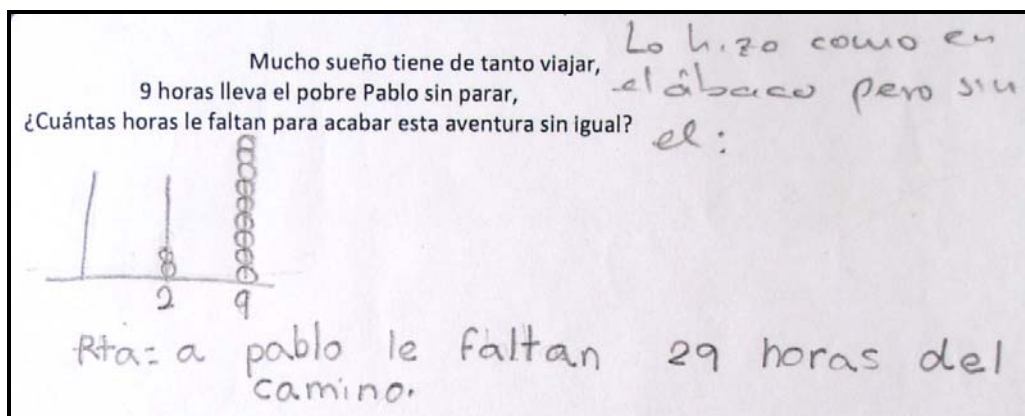 Mucho sueño tiene de tanto viajar,
9 horas lleva el pobre Pablo sin parar,
¿Cuántas horas le faltan para acabar esta aventura sin igual?
Lo hizo como en
el ábaco pero sin
el:
2 9
Rta= a pablo le faltan 29 horas del
camino.